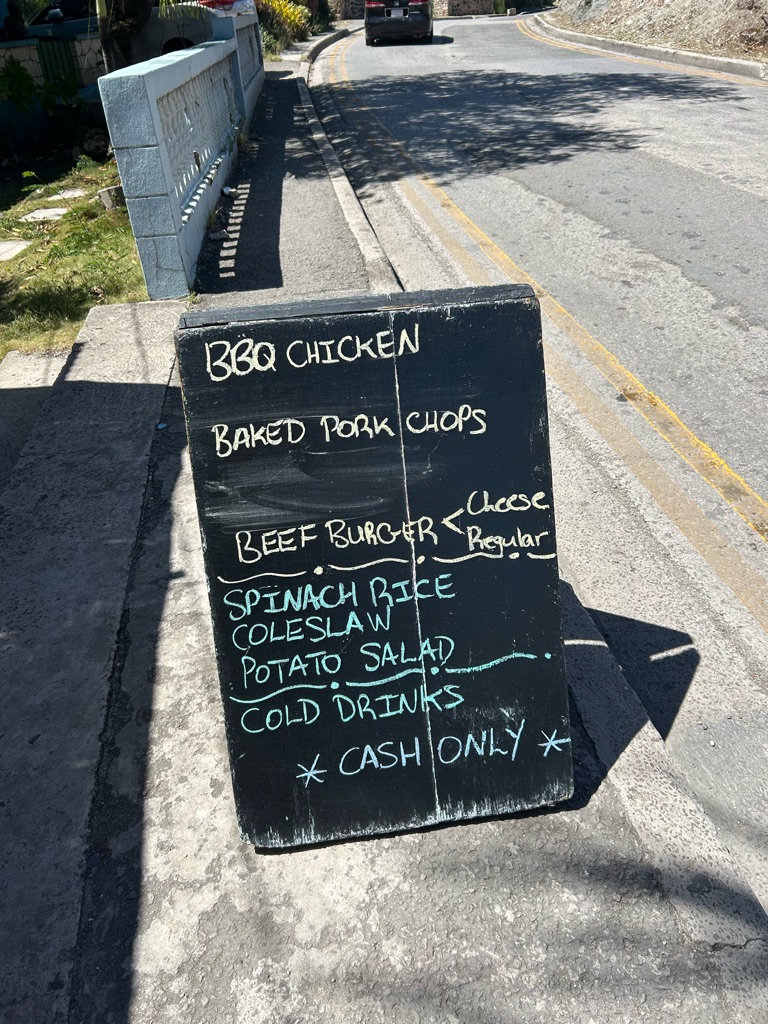 BBQ CHICKEN
BAKED PORK CHOPS
Cheese
BEEF BURGER < Regular
SPINACH RICE
COLESLAW
POTATO SALAD
COLD DRINKS
* CASH ONLY *